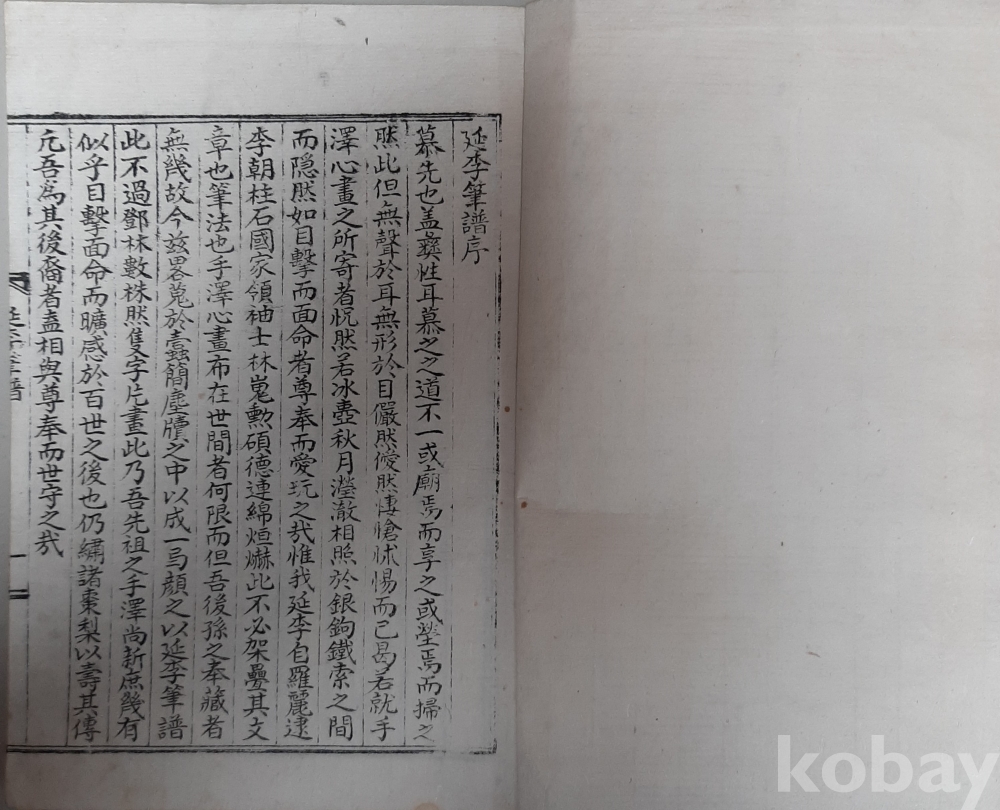 延李筆譜序
慕先也盖彛性耳慕之之道不一或廟焉而享之或塋焉而掃之
然此但無聲於耳無形於目儼然僾然悽愴怵惕而已曷若就手
澤心畫之所寄者怳然若冰壺秋月瀅澈相照於銀鉤鐵索之間
而隱然如目擊而面命者尊奉而愛玩之哉惟我延李自羅麗逮
李朝柱石國家領袖士林嵬勳碩德連綿烜爀此不必架疊其文
章也筆法也手澤心畫布在世間者何限而但吾後孫之奉藏者
無幾故今玆畧蒐於蠹簡塵牘之中以成一局顔之以延李筆譜
此不過鄧林數株然隻字片畫此乃吾先祖之手澤尚新庶幾有
似乎目擊面命而曠感於百世之後也仍繡諸棗梨以壽其傳
凡吾爲其後裔者盍相與尊奉而世守之哉
延李筆譜
一
kobay